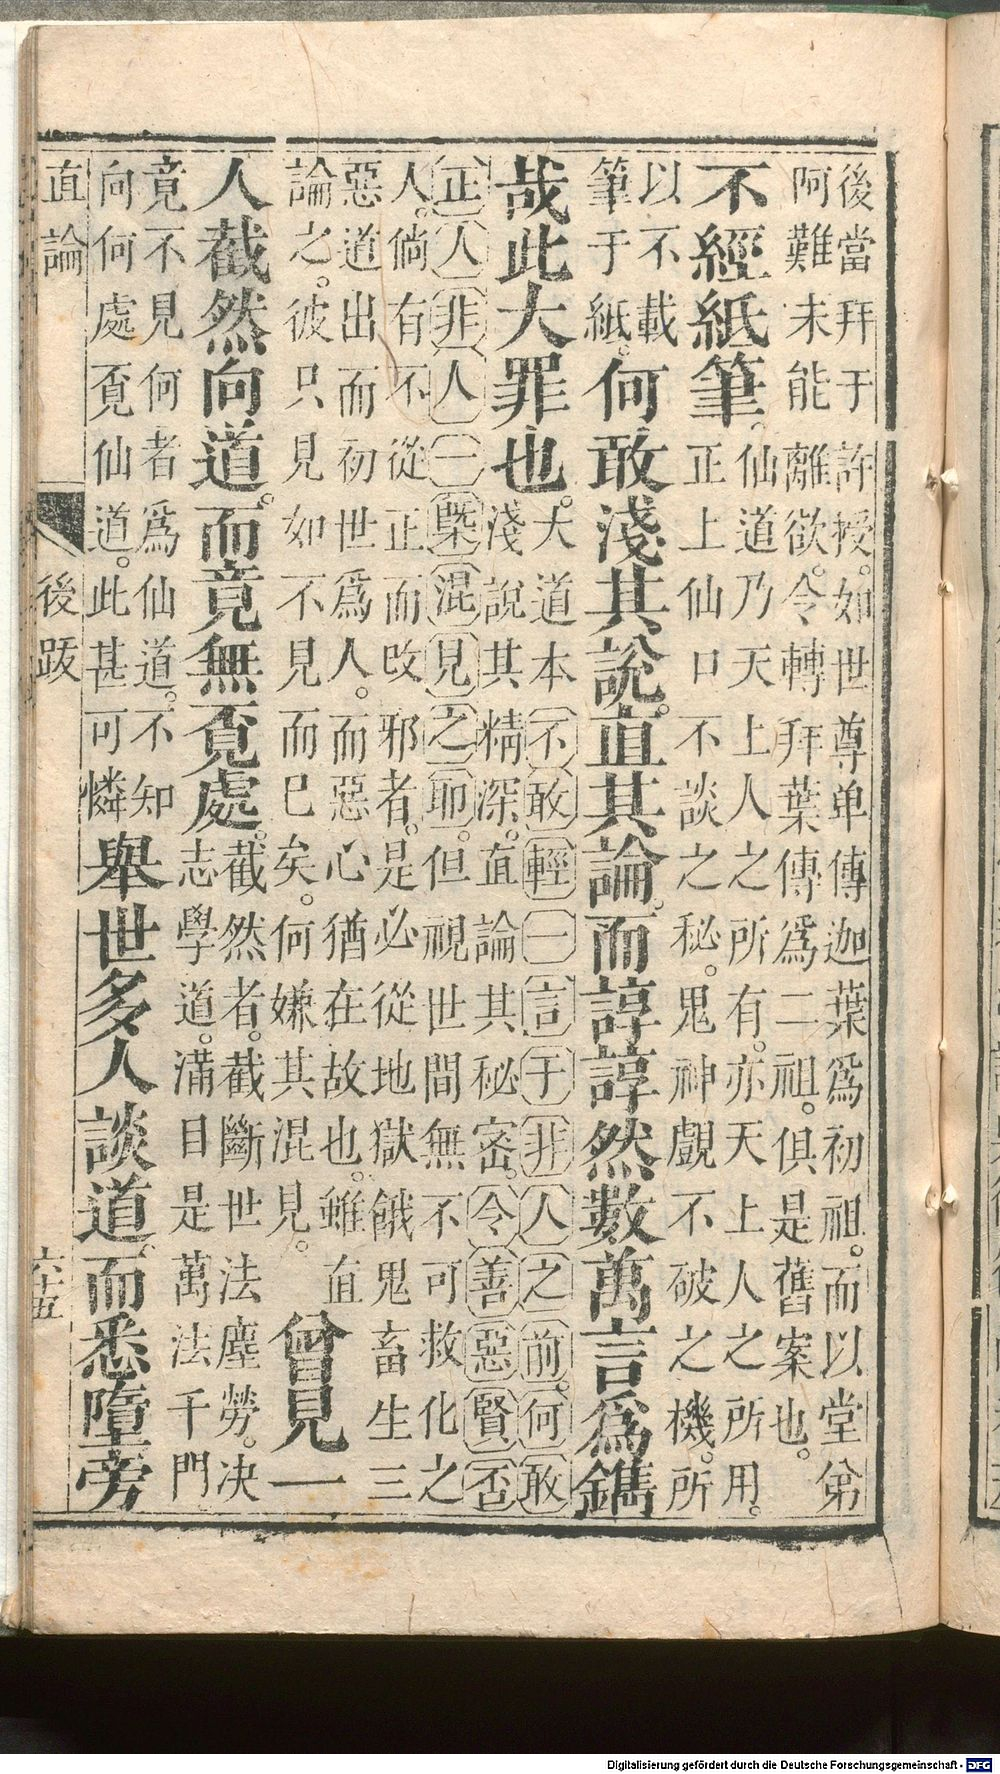 後當拜于許授。如世尊单傳迦葉爲初祖。而以堂弟
阿難未能離欲。令轉拜葉傳爲二祖。俱是舊案也。
不經紙筆。
仙道乃天上人之所有。亦天上人之所用。
正上仙口不談之秘。鬼神覷不破之機。所
以不載
筆于紙。
何敢淺其說。直其論。而諄諄然數萬言爲鐫
哉此大罪也。
大道本不敢輕一言于非人之前。何敢
淺說其精深。直論其秘密。令善惡賢否
正人非人一槩混見之耶。但視世間無不可救化之
人。倘有不從正而改邪者。是必從地獄餓鬼畜生三
惡道出而初世爲人。而惡心猶在故也。雖直
論之。彼只見如不見而已矣。何嫌其混見。
曾見一
人截然向道。而竟無覔處。
截然者。截斷世法塵勞。决
志學道。滿目是萬法千門
竟不見何者爲仙道。不知
向何處覔仙道。此甚可憐
舉世多人談道。而悉墮旁
直論
後跋
六十五
Digitalisierung gefördert durch die Deutsche Forschungsgemeinschaft - DFG